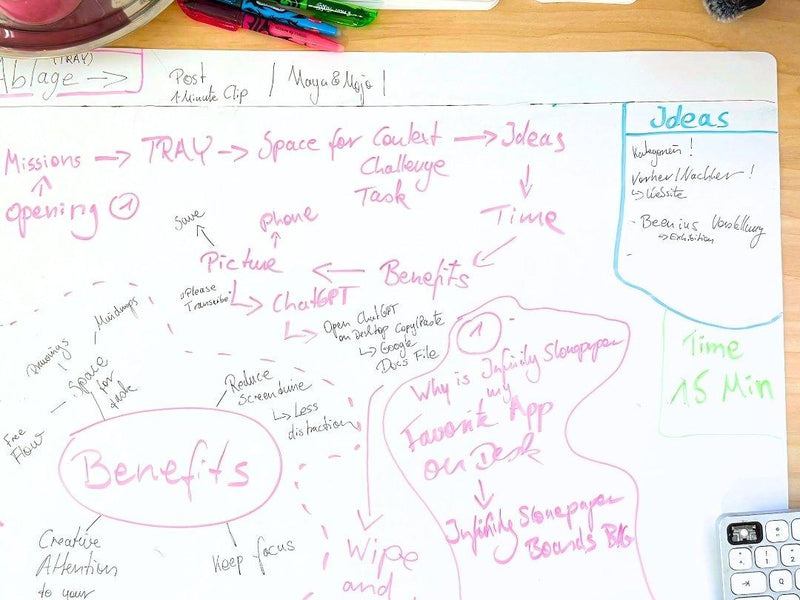 (TRAY)
Ablage →
Post
1 Minute Clip
Maya & Mojo
Missions → TRAY → Space for Context → Ideas
Challenge
Task
Opening 1
Time
Benefits
Picture
Save
Phone
Please
Transcribe
ChatGPT
Open ChatGPT
on Desktop Copy/Paste
Google
Docs File
Ideas
Kategorien!
Vorher/Nachher!
Website
- Vorstellung
Exhibition
-
Time
15 Min
1
Why is Infinity Stonepaper
my
Favorite App
on Desk
Infinity Stonepaper
Boards
Benefits
Mindmaps
Drawings
Space
for
Free
Flow
Reduce
Screentime
Less
distraction
Keep focus
Creative
Attention
to your
Wipe
and